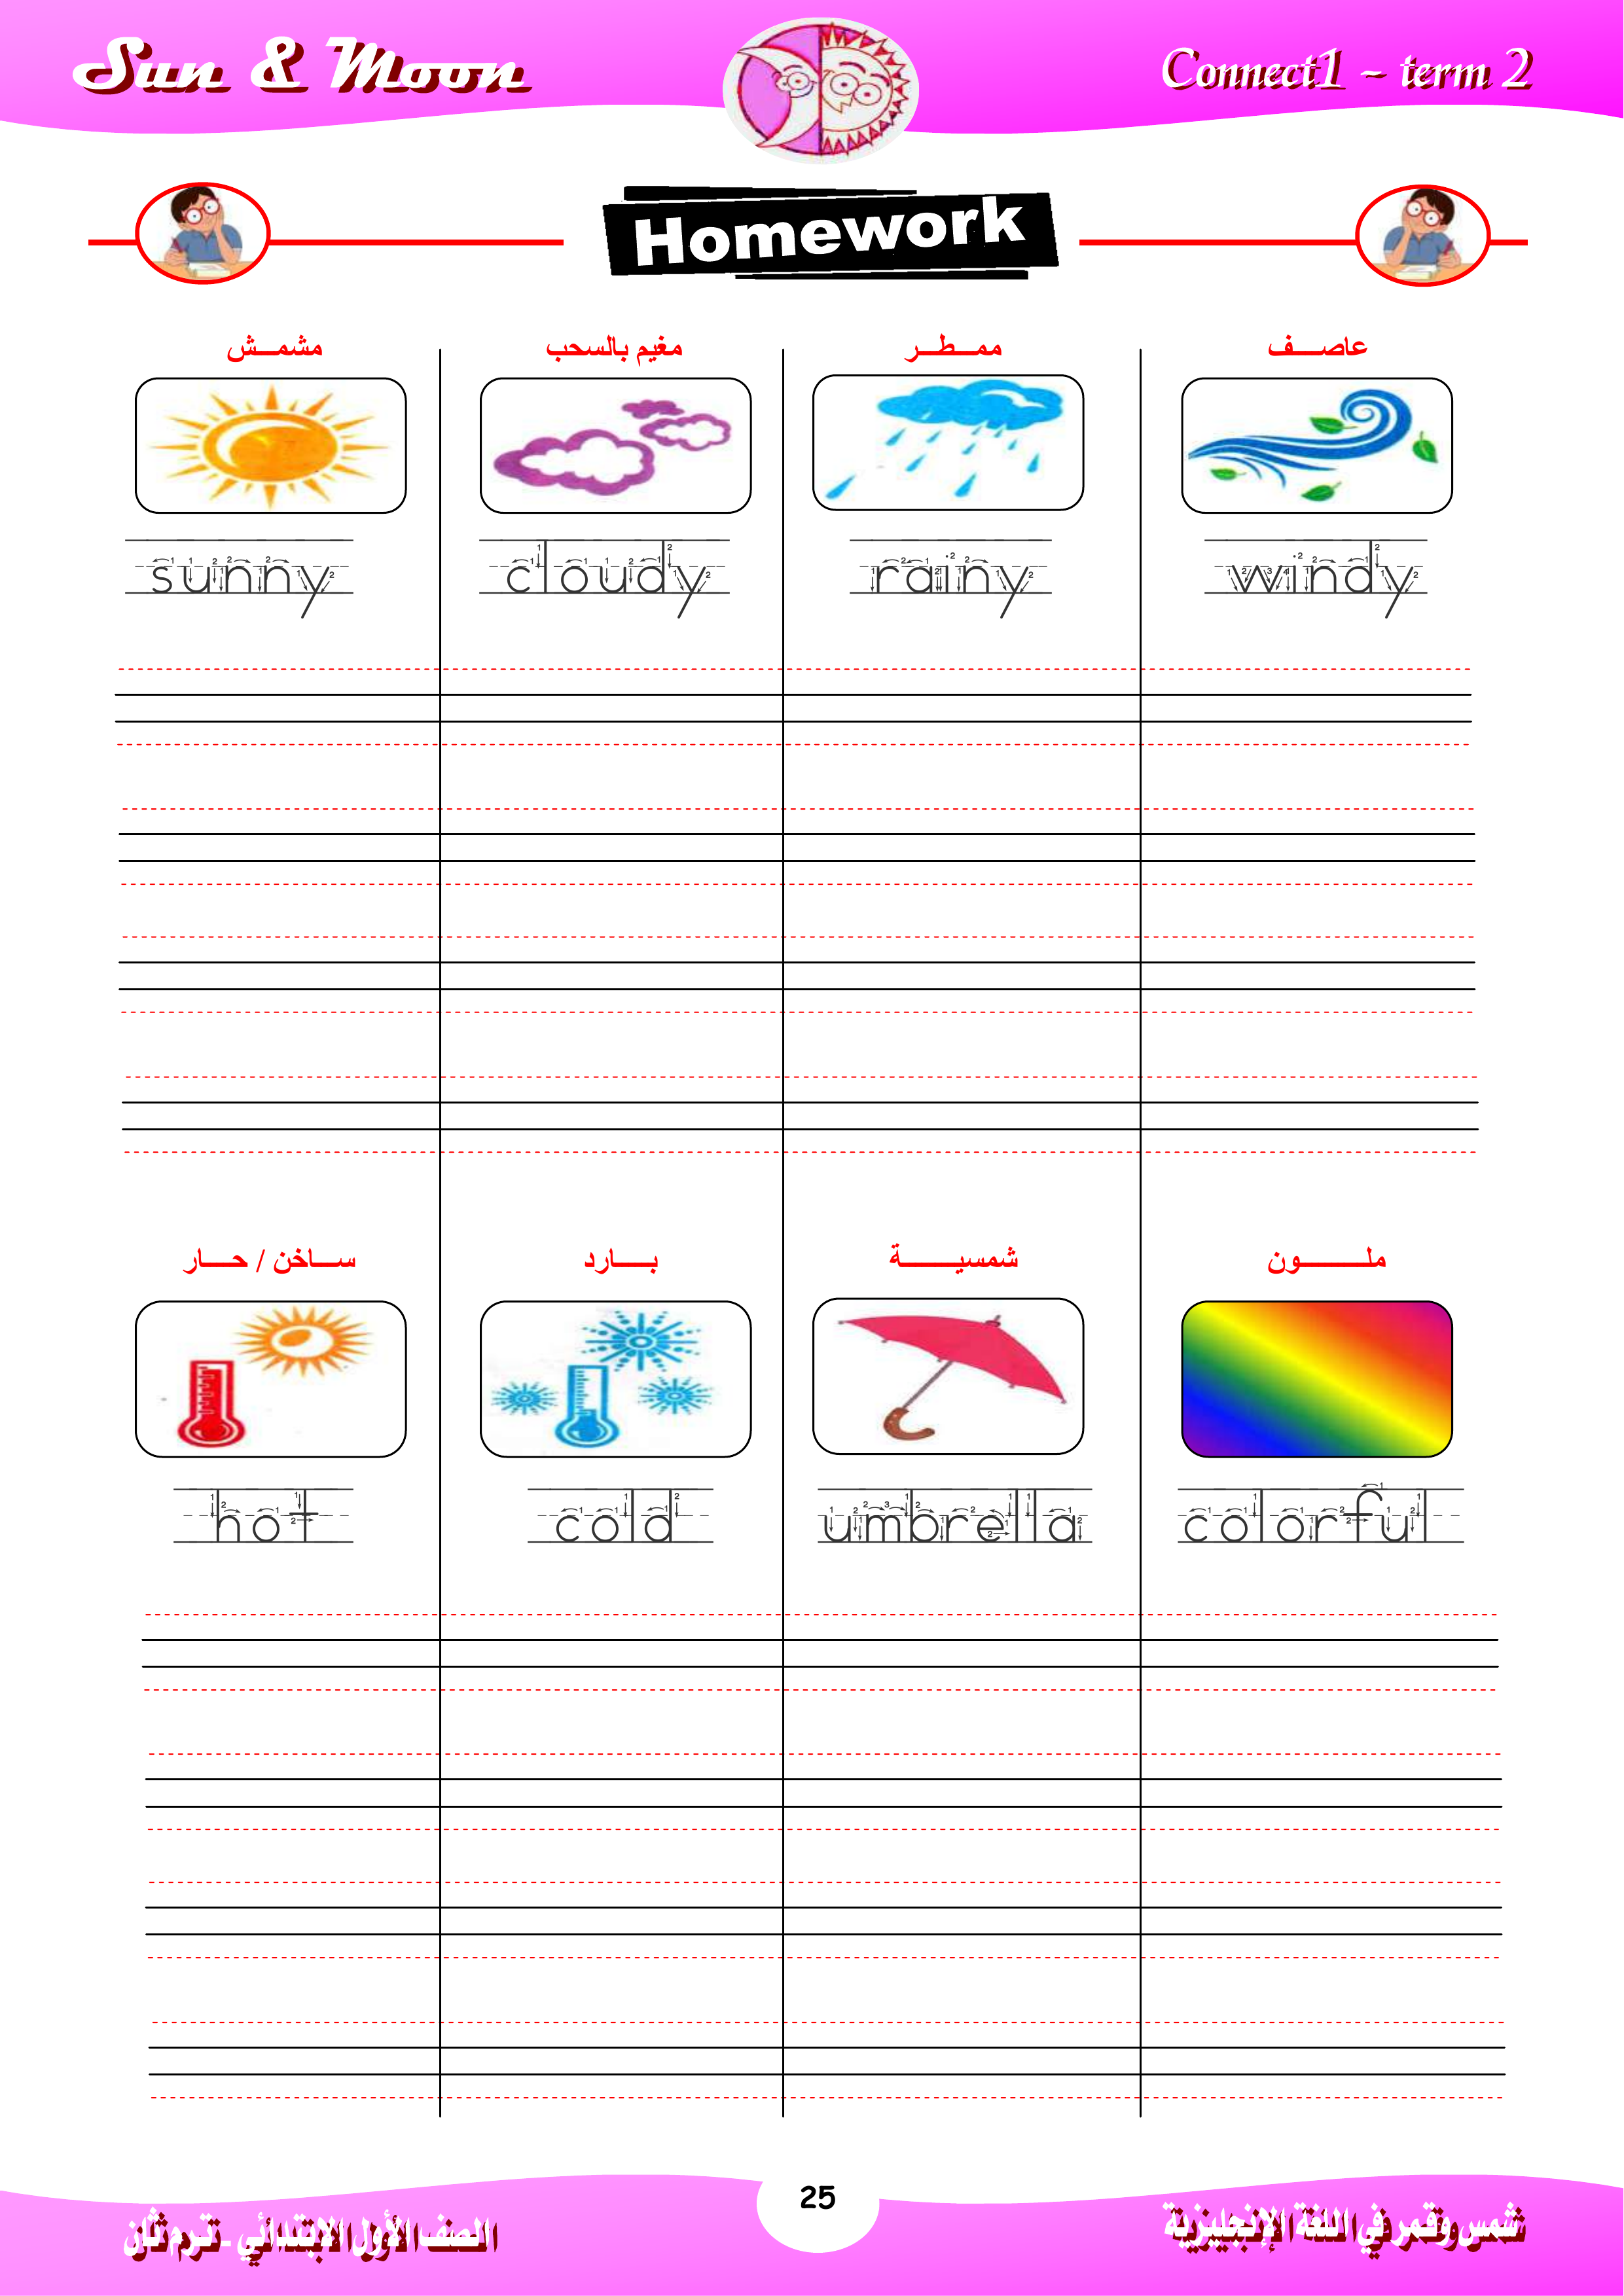 Sun & Moon
Connect1 – term 2
Homework
مشمش
مغيم بالسحب
ممطر
عاصف
sunny
cloudy
rainy
windy
ساخن / حار
بارد
شمسية
ملون
hot
cold
umbrella
colorful
25
الصف الأول الابتدائي - ترم ثان
شمس وقمر في اللغة الإنجليزية